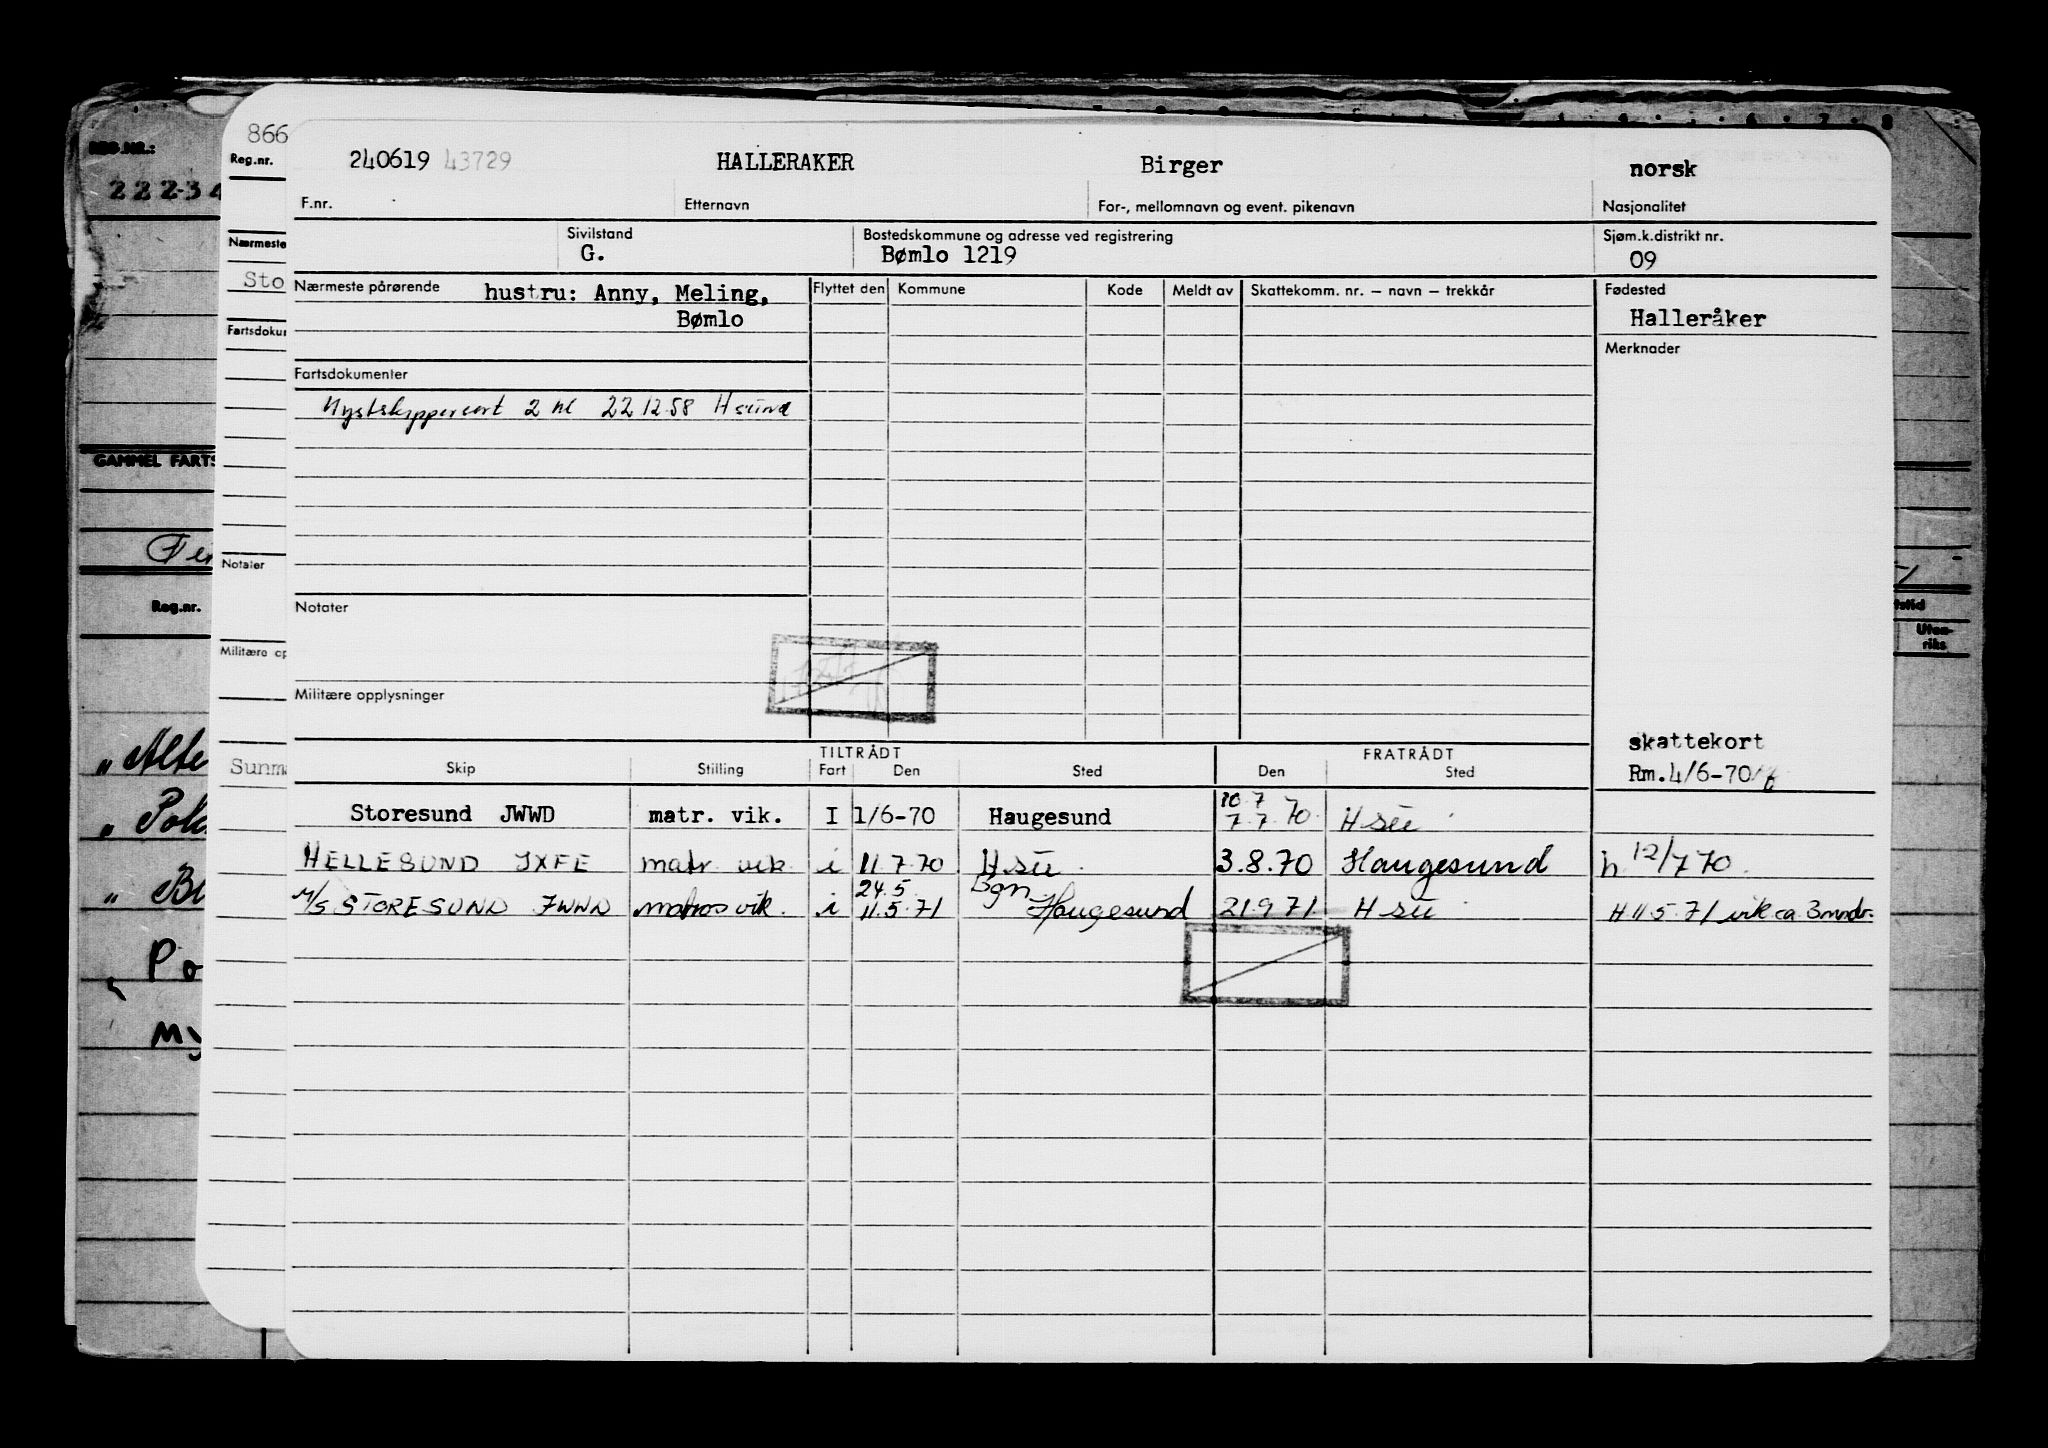 866
REG.NR.:
2 2 2 3 4
Reg.nr.
240619 43729 HALLERAKER Birger norsk
F.nr. Etternavn For-, mellomnavn og event. pikenavn Nasjonalitet
Nærmeste
Sivilstand Bostedskommune og adresse ved registrering Sjøm.k.distrikt nr.
G. Bømlo 1219 09
Sto
Nærmeste pårørende hustru: Anny, Meling, Flyttet den Kommune Kode Meldt av Skattekomm. nr. – navn – trekkår Fødested
Bømlo Halleråker
Fartsdokum
Merknader
Fartsdokumenter
Kystskippercert 2 kl 22 12 58 Hsund
GAMMEL FARTS
Notater
Reg.nr.
Notater
Uten-
riks
Militære op
Militære opplysninger
skattekort
TILTRÅDT FRATRÅDT
Skip Stilling Fart Den Sted Den Sted Rm.4/6-70
"Alte
Sunm
10.7
Storesund JWWD matr. vik. I 1/6-70 Haugesund 7.7.70. H su
"Pol
HELLESUND JXFE matr vik i 11.7.70 H su 3.8.70 Haugesund h 12/7 70.
24.5 Bgn
M/S STORESUND JWWD matros vik. i 11.5.71 Haugesund 21.9.71. H su H 11 5.71 vik ca 3mndr.
Po
My